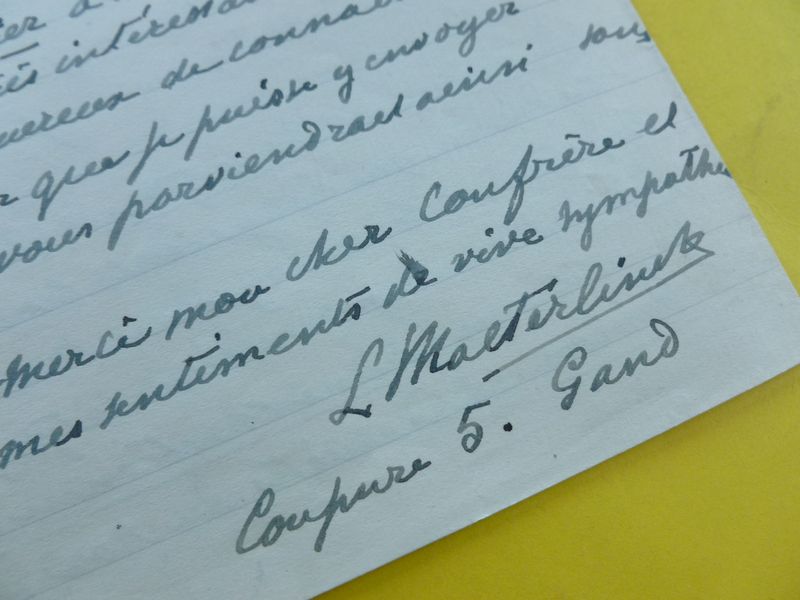 intéressa
heureux de connaî
que je puisse y envoyer
vous parviendrait ainsi sous
Merci mon cher Confrère et
mes sentiments de vive sympathie
L Maeterlinck
Coupure 5. Gand